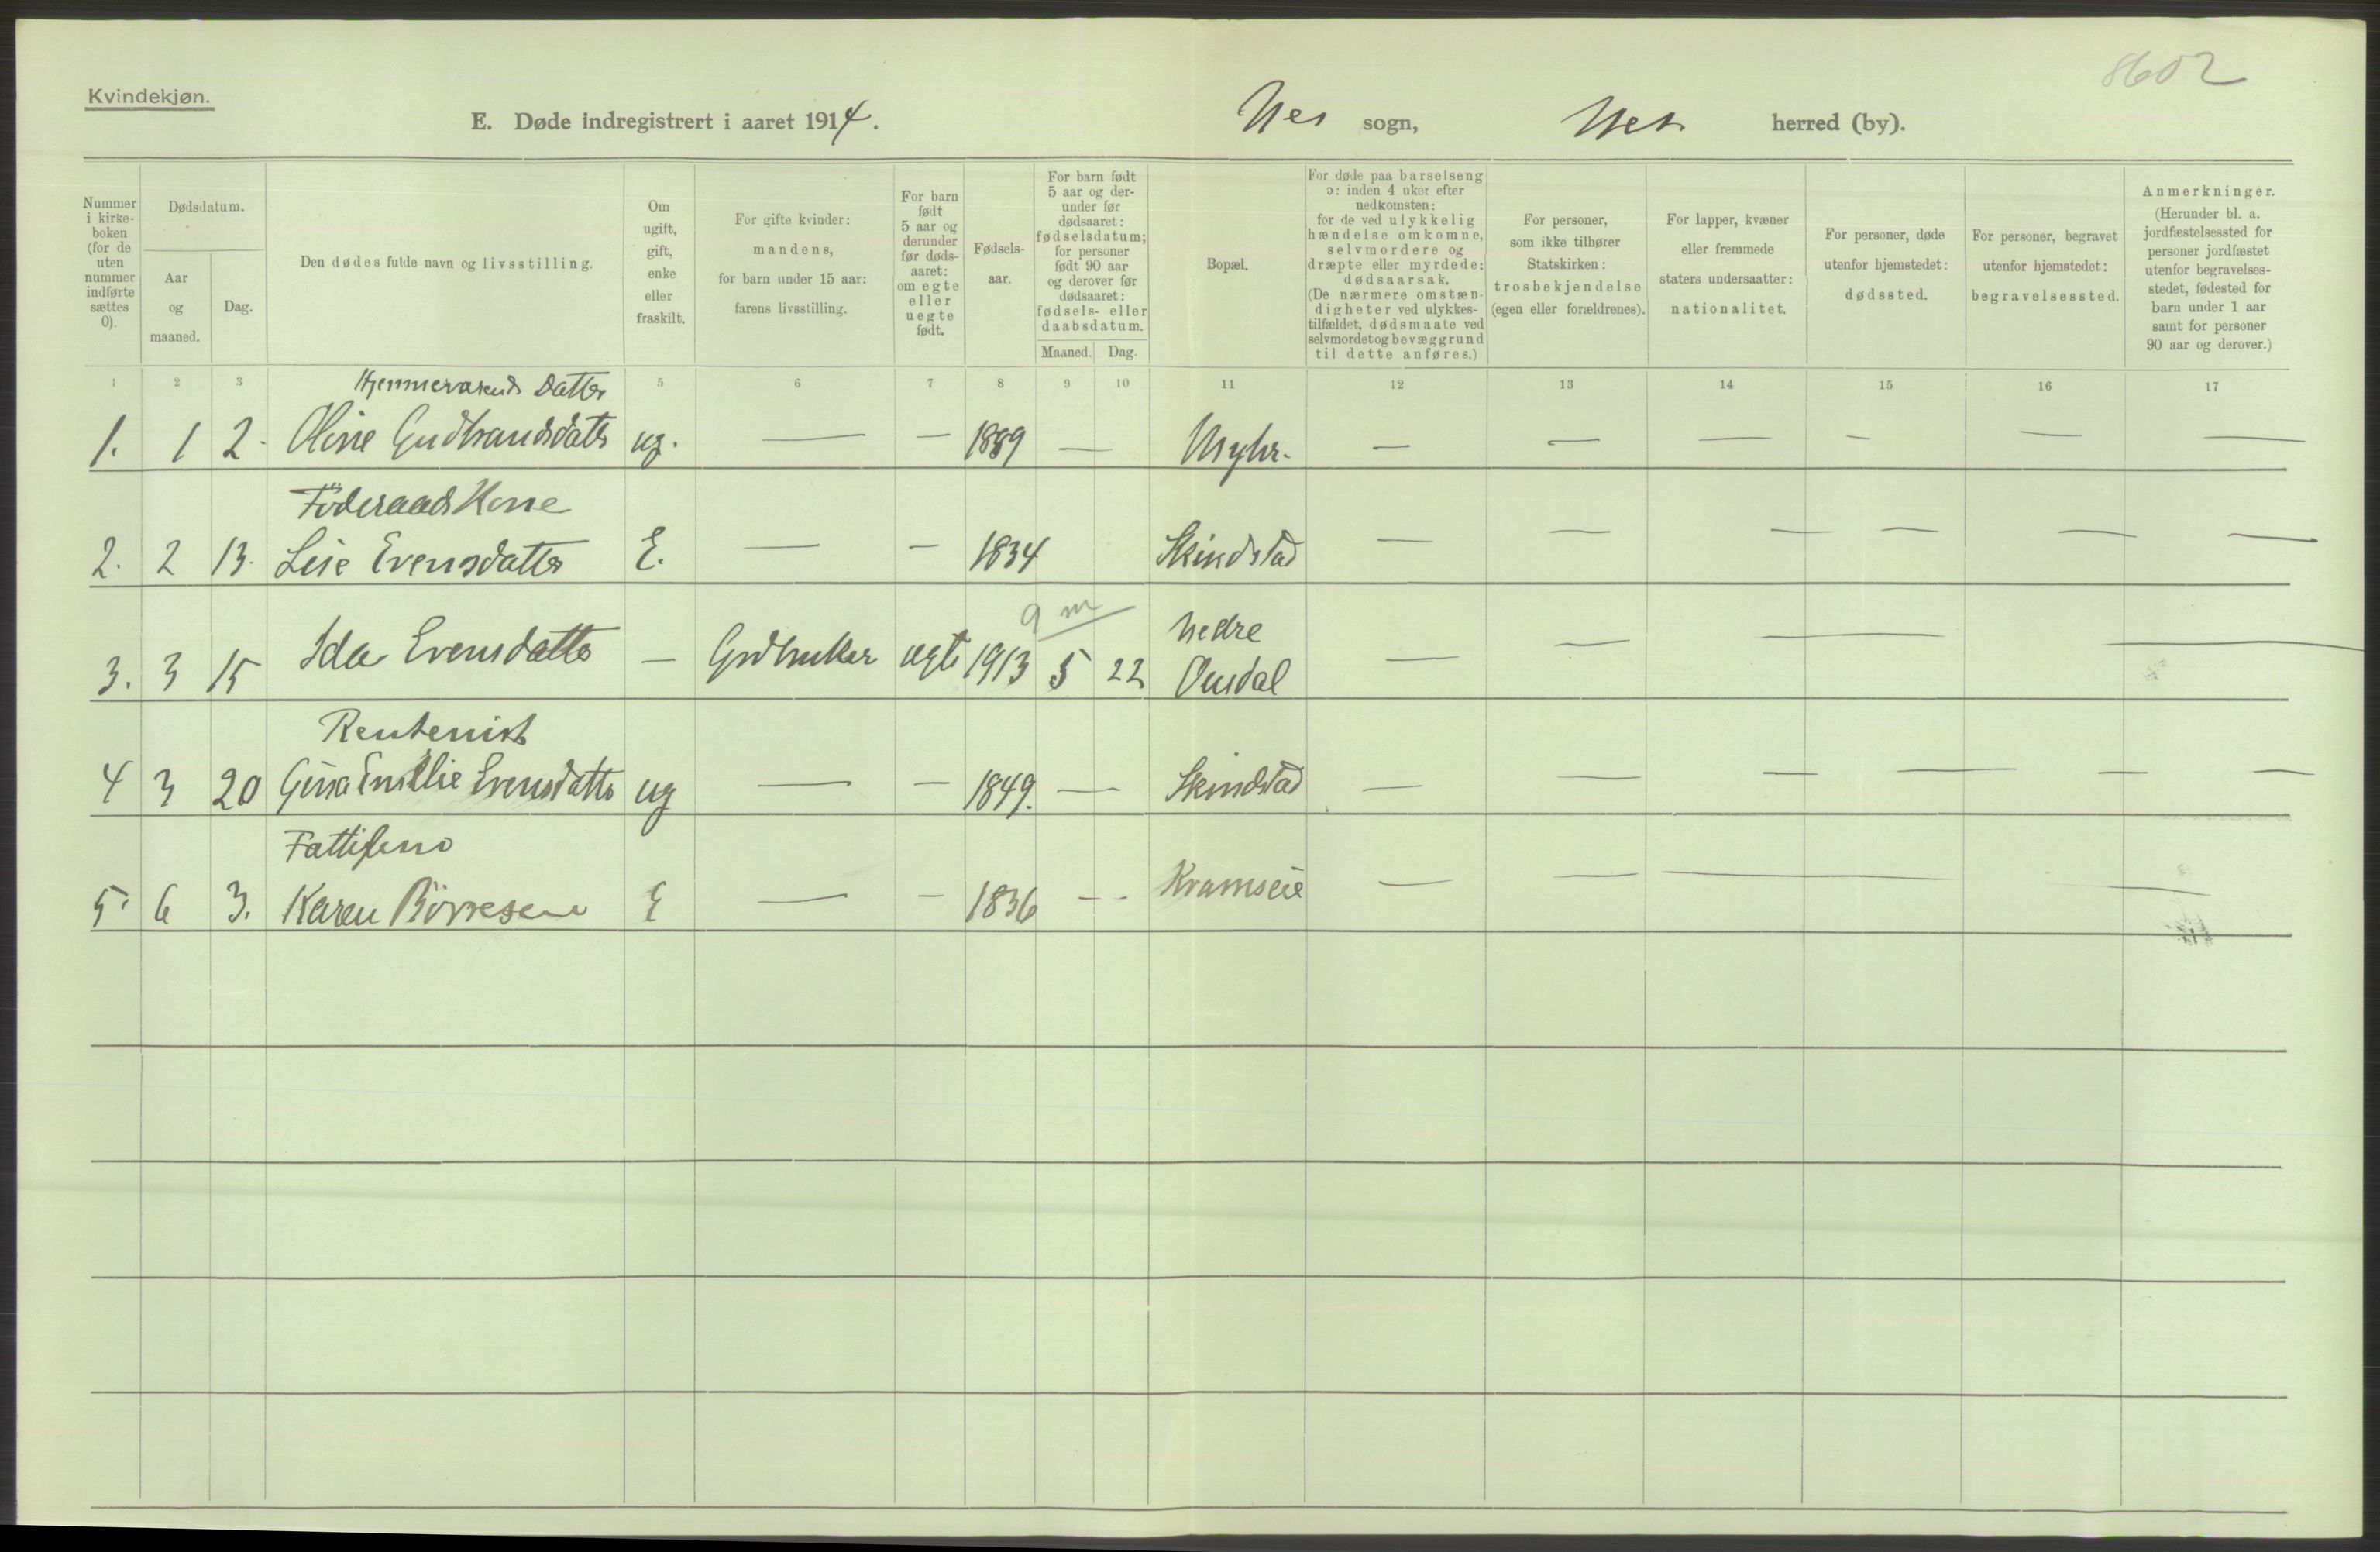 8602
Kvindekjøn.
E. Døde indregistrert i aaret 1914.
Nes sogn, Nes herred (by).
Nummer i kirke-boken (for de uten nummer indførte sættes 0).
Dødsdatum.
Aar og maaned.
Dag.
Den dødes fulde navn og livsstilling.
Om ugift, gift, enke eller fraskilt.
For gifte kvinder: mandens, for barn under 15 aar: farens livsstilling.
For barn født 5 aar og derunder før døds-aaret: om egte eller uegte født.
Fødsels-aar.
For barn født 5 aar og der-under før dødsaaret: fødselsdatum; for personer født 90 aar og derover før dødsaaret: fødsels- eller daabsdatum.
Maaned. Dag.
Bopæl.
For døde paa barselseng ɔ: inden 4 uker efter nedkomsten: for de ved ulykkelig hændelse omkomne, selvmordere og dræpte eller myrdede: dødsaarsak. (De nærmere omstæn-digheter ved ulykkes-tilfældet, dødsmaate ved selvmordet og bevæggrund til dette anføres.)
For personer, som ikke tilhører Statskirken: trosbekjendelse (egen eller forældrenes).
For lapper, kvæner eller fremmede staters undersaatter: nationalitet.
For personer, døde utenfor hjemstedet: dødssted.
For personer, begravet utenfor hjemstedet: begravelsessted.
Anmerkninger. (Herunder bl. a. jordfæstelsessted for personer jordfæstet utenfor begravelses-stedet, fødested for barn under 1 aar samt for personer 90 aar og derover.)
1 2 3 5 6 7 8 9 10 11 12 13 14 15 16 17
Hjemmeværende Datter
1. 1 2. Oline Gudbrandsdatter ug. — — 1889 — Myhr. — — — — — —
Föderaads Kone
2. 2 13. Lise Evensdatter E. — — 1834 Skindstad — — — — — —
9 m
Nedre
3. 3 15 Ida Evensdatter — Grdbruker egte 1913 5 22 — — — —
Rentenist
4 3 20 Gina Emilie Evensdatter ug — — 1849. — Skindstad — — — — — —
Fattiglem
5. 6 3. Karen Börresen E — — 1836 — — Kramseie — — — —